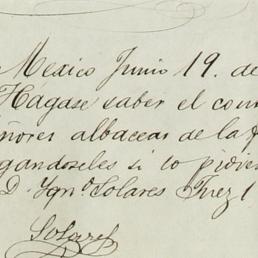 Mexico Junio 19. de
Hágase saber el con
ñores albaceas de la
gandoseles si lo pidie
D. Ygnº Solares Juez 1
Solares